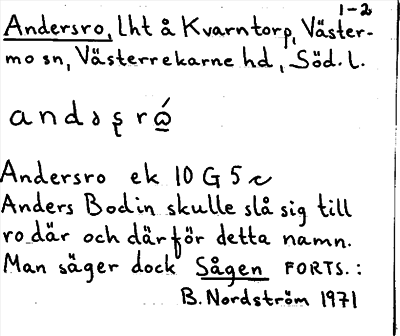 1-2
Andersro, lht å Kvarntorp, Väster-
mo sn, Västerrekarne hd, Söd. l.
Andersro ek 10 G 5 c
Anders Bodin skulle slå sig till
ro där och därför detta namn.
Man säger dock Sågen FORTS.:
B. Nordström 1971